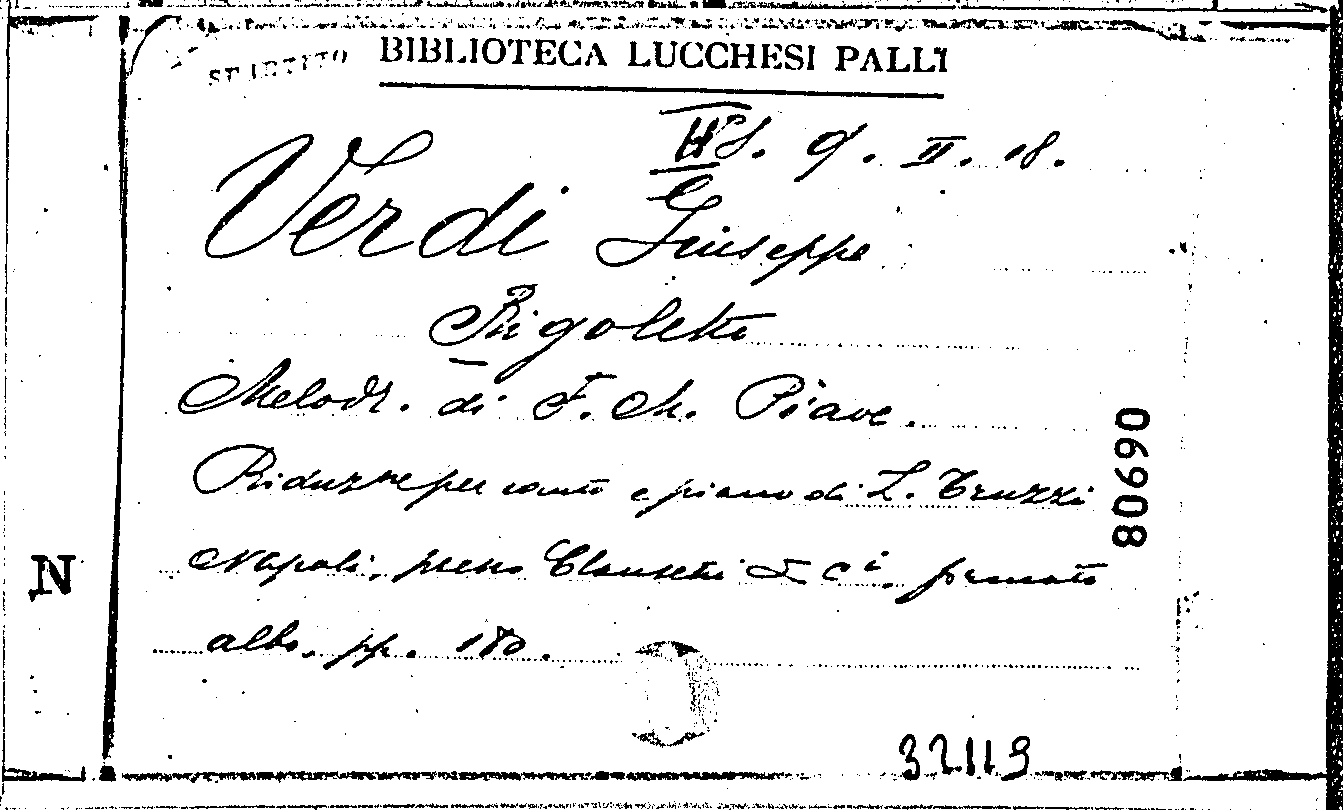 SPARTITO
BIBLIOTECA LUCCHESI PALLI
S. 9. II. 18.
Verdi Giuseppe
Rigoletto
Melodr. di F. M. Piave.
Riduzne per canto e piano di L. Truzzi
Napoli, presso Clausetti & Ci. formato
albo. pp. 180.
N
80990
32119